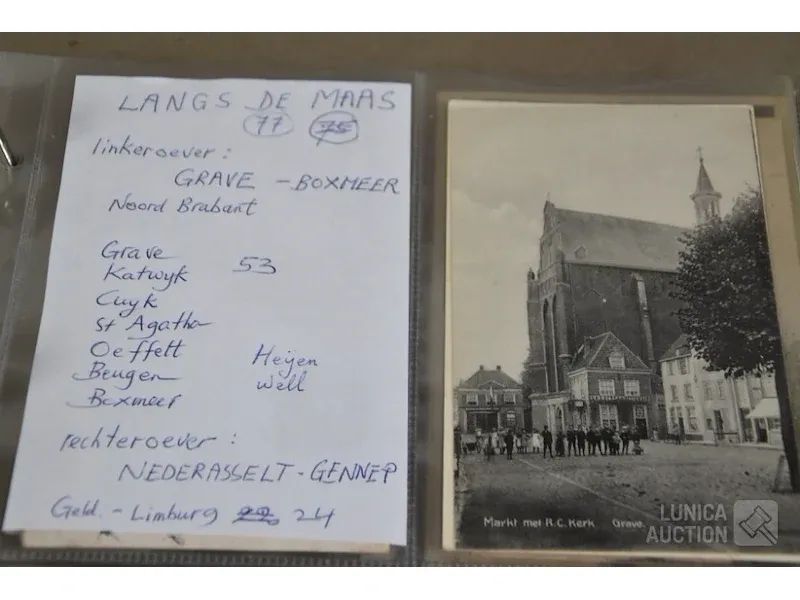 LANGS DE MAAS
77 75
linkeroever :
GRAVE - BOXMEER
Noord Brabant
Grave
Katwyk 53
Cuyk
St Agatha
Oeffelt Heijen
Beugen Well
Boxmeer
rechteroever :
NEDERASSELT - GENNEP
Geld. - Limburg 22 24
Markt met R.C. Kerk Grave
LUNICA
AUCTION